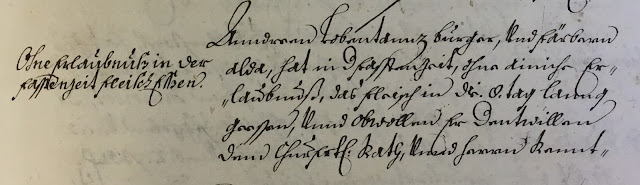 Ohne Erlaubnuß in der
fasstenzeit fleisch Essen.
Anndreen Lobentanz burger, Und färbern
alda, hat in d. fasstenzeit, ohne ainiche Er-
laubnuß, das fleisch in die 8. tag lanng
gessen, Unnd Obwollen Er dentwillen
dem Churfrtl: Rath, Unnd herrn Rennt-